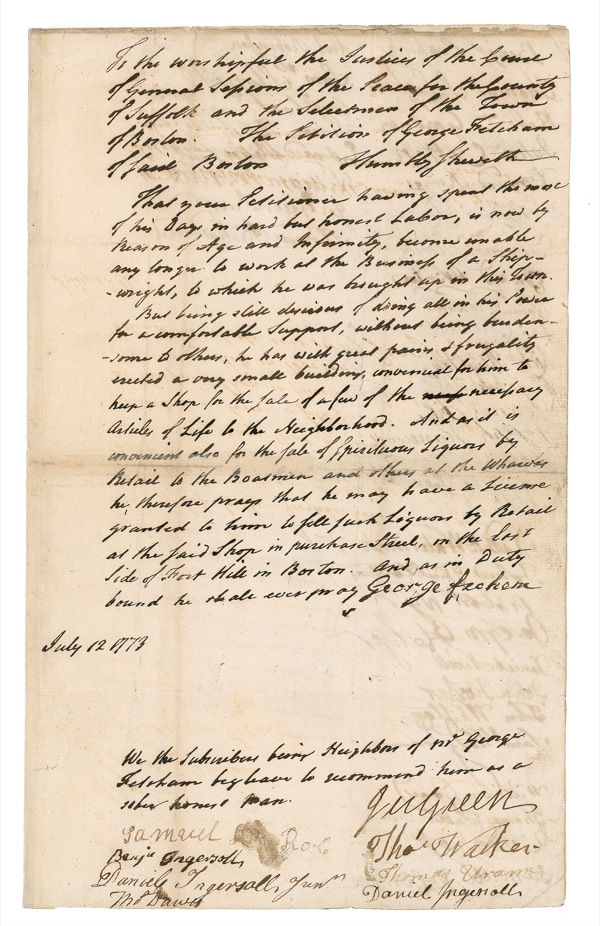 To the worshipful the Justices of the Court
of General Sessions of the Peace for the County
of Suffolk and the Selectmen of the Town
of Boston. The Petition of George Fetcham
of said Boston Humbly Sheweth
That your Petitioner having spent the most
of his Days in hard but honest Labor, is now by
Reason of Age and Infirmity, become unable
any longer to work at the Business of a Ship-
-wright, to which he was brought up in this Town.
But being still desirous of doing all in his Power
for a comfortable Support, without being burden-
-some to others, he has with great pains, & frugality
erected a very small building, convenient for him to
keep a Shop for the sale of a few of the necessary
Articles of Life to the Neighborhood. And as it is
convenient also for the sale of Spirituous Liquors by
Retail to the Boatmen and others at the Wharves
he therefore prays that he may have a License
granted to him to sell such Liquors by Retail
at the said Shop in purchase Street, on the East
Side of Fort Hill in Boston. And as in Duty
bound he shall ever pray George
July 12 1773
We the Subscribers being Neighbors of Mr George
Fetcham beg leave to recommend him as a
sober honest Man.
Green
Samuel
Thos Walker
Benja Ingersoll
Thomas
Daniel Ingersoll Junr
Daniel Ingersoll
Thos Dawes